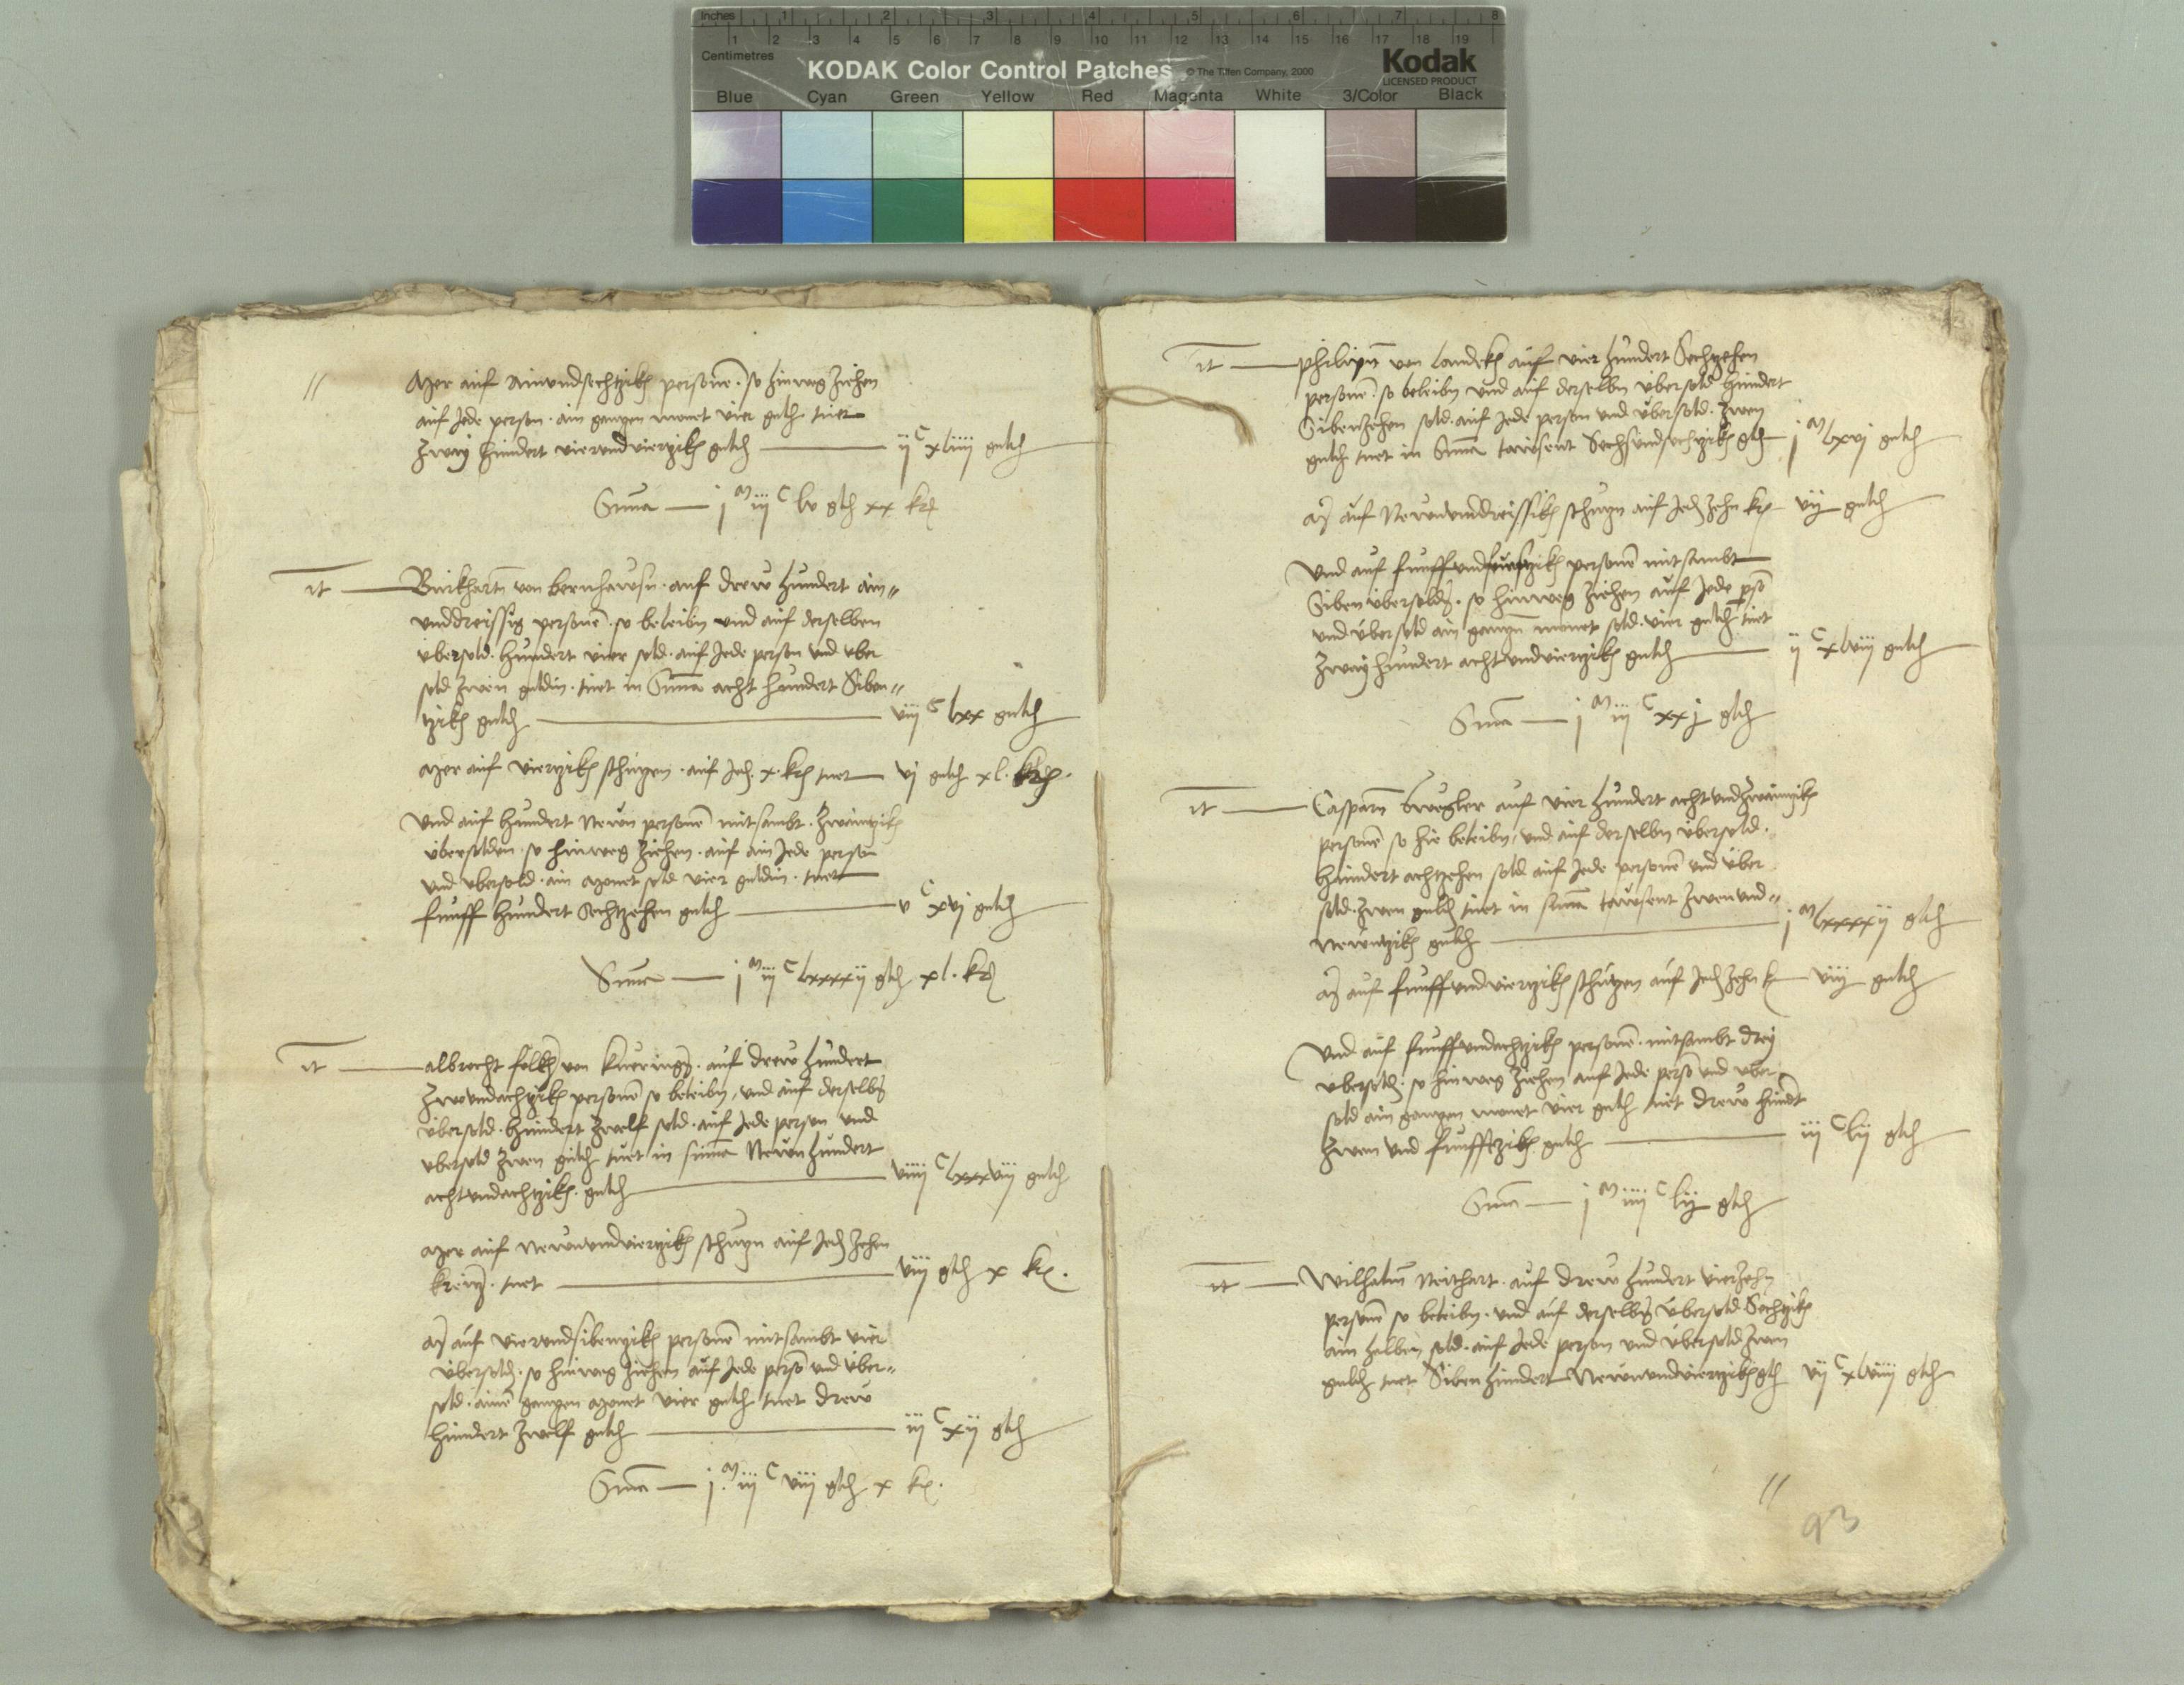 Inches 1 2 3 4 5 6 7 8
1 2 3 4 5 6 7 8 9 10 11 12 13 14 15 16 17 18 19
Centimetres
KODAK Color Control Patches © The Tiffen Company, 2000 Kodak
LICENSED PRODUCT
Blue Cyan Green Yellow Red Magenta White 3/Color Black
// Mer auf ainundsechtzikh personē. so hinweg ziehen
auf Jede person. ain gantzen monet vier guldn. tuet
Zway hundert vierundviertzikh guldn — ij C xliiij guldn
Suma — j M iij C lv gldn xx krn
It — Burkhartn von bernhawsn. auf drew hundert ain„
unddreissig personē. so beleibn und auf derselben
ubersold. hundert vier sold. auf Jede person und uber
sold zwen guldin. tuet in Suma acht hundert Siben„
tzikh guldn — viij C lxx guldn
Mer auf viertzikh schutzen. auf Jedn. x. krn tuet — vj guldn xl. krn.
Und auf hundert Newn personē mitsambt. Zwaintzikh
ubersolden. so hinweg ziehen. auf ain Jede person
und ubersold. ain Monet sold vier guldin. tuet
funff hundert Sechtzehen guldn — v C xvj guldn
Suma — j M iij C lxxxxij gldn xl. krn
It — albrecht von auf drew hundert
Zwoundachtzikh personē so beleibn, und auf derselbn
ubersold. hundert zwelf sold. auf Jede person und
ubersold zwen guldn tuet in suma Newn hundert
achtundachtzikh. guldn — viiij C lxxxviij guldn
Mer auf Newnundviertzikh schutzn auf Jedn zehen
kreitzr. tuet — viij gldn x kr.
Mer auf vierundsibentzikh personē mitsambt vier
ubersoldn. so hinweg ziehen auf Jede persō und uber„
sold. ainē gantzen Monet vier guldn tuet drew
hundert zwelf guldn — iij C xij gldn
Suma — j M iij C viij gldn x kr.
It — Philippn von landekh auf vier hundert Sechtzehen
personē. so beleibn und auf derselbn ubersold hundert
Sibentzehen sold. auf Jede person und ubersold. zwen
guldn tuet in Suma tawsent Sechsundsechtzikh gldn — j M lxvj guldn
Mer auf Newnunddreissikh schutzn auf Jedn zehn kr — vij guldn
Und auf funffund personē mitsambt
Siben ubersoldn. so hinweg ziehen auf Jede psō
und ubersold ain gantzn monet sold. vier guldn tuet
Zway hundert achtundviertzikh guldn — ij C xlviij guldn
Suma — j M iij C xxj gldn
It — Casparn auf vier hundert achtundzwaintzikh
personē so hie beleibn, und auf derselbn ubersold.
hundert achtzehen sold auf Jede personē und uber
sold. zwen guldn tuet in suma tawsent zwenund„
Newntzikh guldn — j M lxxxxij gldn
Mer auf funffundviertzikh schutzen auf Jedn zehn k — viij guldn
Und auf funffundachtzikh personē. mitsambt drey
ubersoldn. so hinweg ziehen auf Jede persō und uber
sold ain gantzen monet vier guldn tuet drew hundt
Zwen und funfftzikh. guldn — iij C lij gldn
Suma — j M iiij C lij gldn
It — Wilhalm Neithart. auf drew hundert vierzehn
personē so beleibn. und auf derselbn ubersold Sechtzikh
ain halben sold. auf Jede person und ubersold zwen
guldn tuet Siben hundert Newnundviertzikh gldn vij C xlviiij gldn
//
93